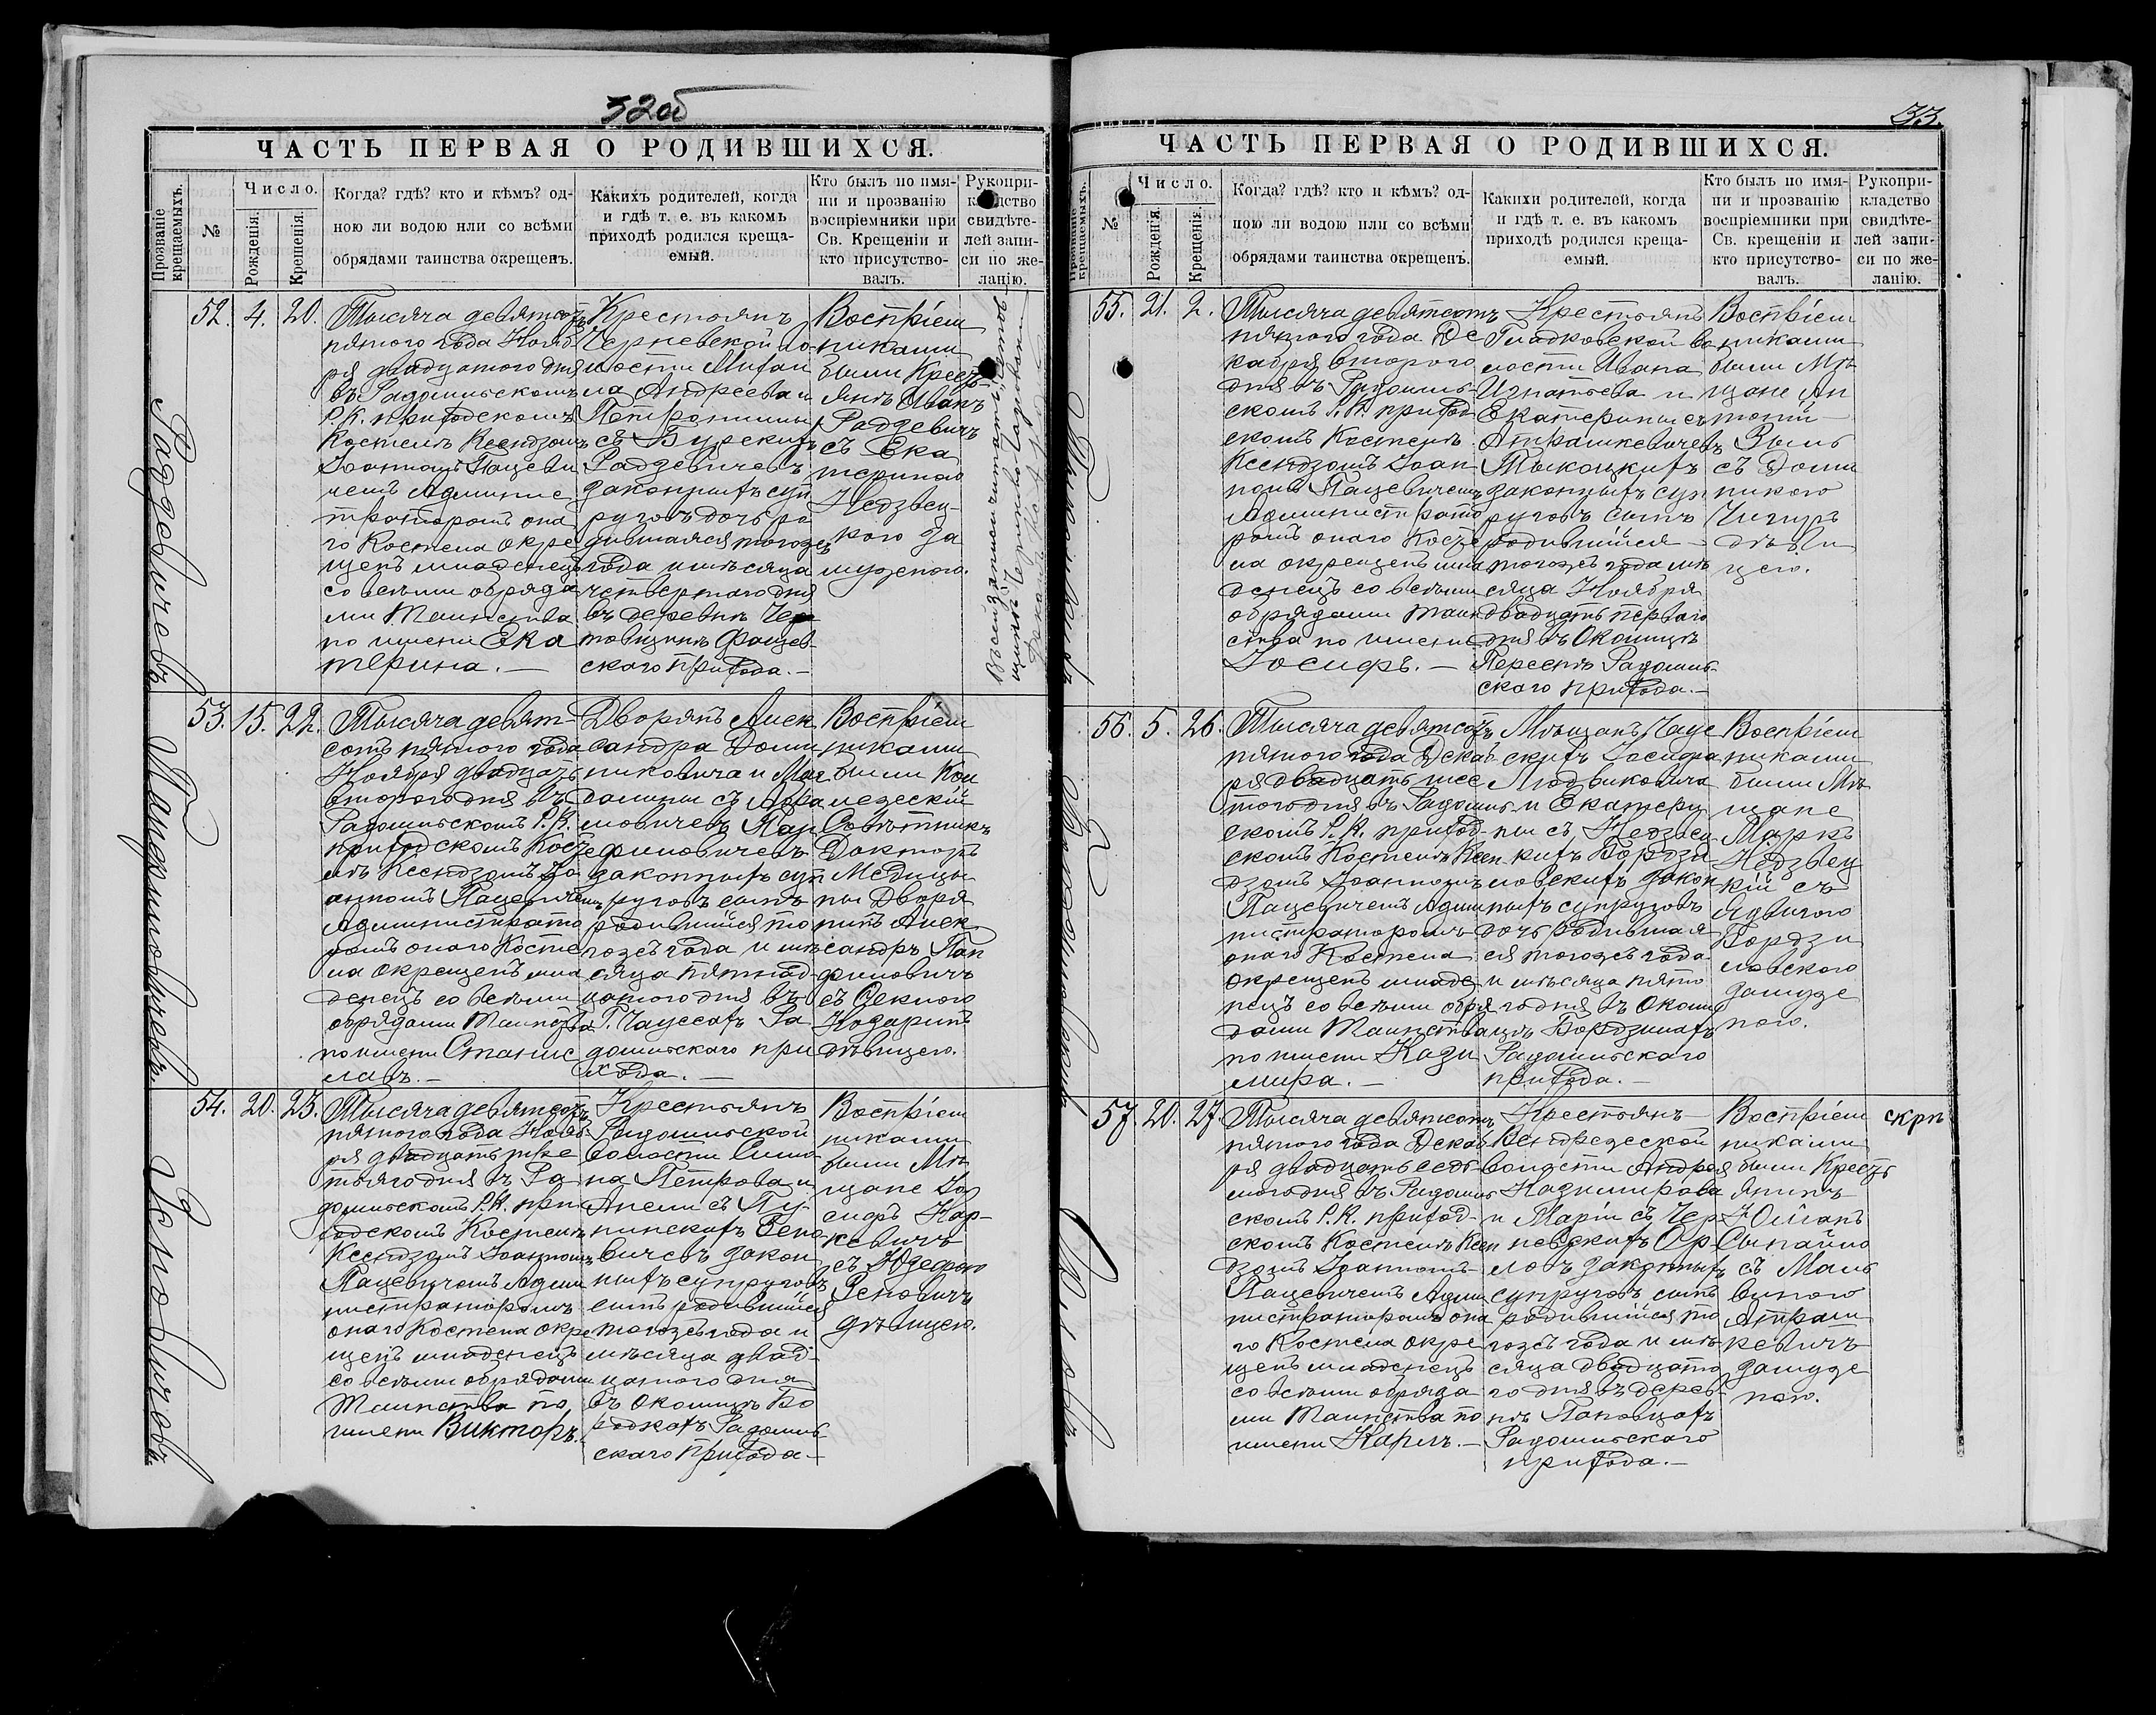 32об
ЧАСТЬ ПЕРВАЯ О РОДИВШИХСЯ.
Прозваніе крещаемыхъ.
№
Число.
Рожденія.
Крещенія.
Когда? гдѣ? кто и кѣмъ? од-
ною ли водою или со всѣми
обрядами таинства окрещенъ.
Какихъ родителей, когда
и гдѣ т. е. въ какомъ
приходѣ родился креща-
емый.
Кто былъ по имя-
ни и прозванію
воспріемники при
Св. Крещеніи и
кто присутство-
валъ.
Рукопри-
кладство
свидѣте-
лей запи-
си по же-
ланію.
Радзевичевъ
52. 4. 20.
Тысяча девятсотъ
пятого года Нояб
ря двадцатого дня
въ Радомльскомъ
Р. К. приходскомъ
Костелѣ Ксендзомъ
Іоанномъ Пацеви
чемъ Админис
траторомъ она
го Костела окре
щенъ младенецъ
со всѣми обряда
ми Таинства
по имени Ека
терина. —
Крестьянъ
Черневской во-
лости Михаи
ла Андреева и
Петронины
съ Бурскихъ
Радзевичевъ
законныхъ суп
руговъ дочь ро
дившаяся тогоже
года и мѣсяца
четвертаго дня
въ деревнѣ Чер
товщинѣ Фащев-
скаго прихода. —
Воспріем
никами
были Крест-
янъ Иванъ
Радзевичъ
съ Ека
териною
Недзвец-
кою за
мужнею.
Панфиловичевъ
53. 15. 22.
Тысяча девят-
сотъ пятого года
Ноября двадцать
второго дня въ
Радомльскомъ Р. К.
приходскомъ Косте
лѣ Ксендзомъ Іо
анномъ Пацевичемъ
Администрато
ромъ онаго Косте
ла окрещенъ мла
денецъ со всѣми
обрядами Таинства
по имени Станис
лавъ. —
Дворянъ Алек
сандра Доми
никовича и Маг
далины съ Абра
мовичевъ Пан
филовичевъ
законныхъ суп
руговъ сынъ
родившійся то
гоже года и мѣ
сяца пятнад-
цатого дня въ
Г. Чаусахъ Ра
домльскаго при
хода. —
Воспріем
никами
были Кол
лежскій
Совѣтникъ
Докторъ
Медици
ны Дворя
нинъ Алек
сандръ Пан
филовичъ
съ Феклою
дѣвицею.
Зеновичевъ
54. 20. 23.
Тысяча девятсотъ
пятого года Нояб
ря двадцать тре
тьяго дня въ Ра
домльскомъ Р. К. при
ходскомъ Костелѣ
Ксендзомъ Іоанномъ
Пацевичемъ Адми
нистраторомъ
онаго Костела окре
щенъ младенецъ
со всѣми обрядами
Таинства по
имени Викторъ.
Крестьянъ
Радомльской
волости Симо
на Петрова и
Анели съ Лу-
пинскихъ Зено
вичевъ закон
ныхъ супруговъ
сынъ родившійся
тогоже года и
мѣсяца двад-
цатого дня
въ околицѣ Бо
родкахъ Радомль-
скаго прихода —
Воспріем
никами
были Мѣ
щане Іо
сифъ Кар-
кевичъ
Зеновичъ
дѣвицею.
33.
ЧАСТЬ ПЕРВАЯ О РОДИВШИХСЯ.
Прозваніе крещаемыхъ.
№
Число.
Рожденія.
Крещенія.
Когда? гдѣ? кто и кѣмъ? од-
ною ли водою или со всѣми
обрядами таинства окрещенъ.
Какихи родителей, когда
и гдѣ т. е. въ какомъ
приходѣ родился креща-
емый.
Кто былъ по имя-
ни и прозванію
воспріемники при
Св. крещеніи и
кто присутство-
валъ.
Рукопри-
кладство
свидѣте-
лей запи-
си по же-
ланію.
55. 21. 2.
Тысяча девятсотъ
пятого года Де
кабря второго
дня въ Радомль-
скомъ Р. К. приход
скомъ Костелѣ
Ксендзомъ Іоан
номъ Пацевичемъ
Администрато
ромъ онаго Косте
ла окрещенъ мла
денецъ со всѣми
обрядами Таин
ства по имени
Іосифъ. —
Крестьянъ
Гладковской во
лости Ивана
Игнатьева и
Екатерины съ
Атрашкевичевъ
Тыкоцкихъ
законныхъ суп
руговъ сынъ
родившійся
тогоже года мѣ
сяца Ноября
двадцать перваго
дня въ Околицѣ
Пересепѣ Радомль-
скаго прихода. —
Воспріем
никами
были Мѣ
щане Ан
тоній
съ Доми
никою
дѣви
цею.
56. 5. 26.
Тысяча девятсотъ
пятого года Декаб
ря двадцать шес
того дня въ Радомль
скомъ Р. К. приход-
скомъ Костелѣ Ксен
дзомъ Іоанномъ
Пацевичемъ Адми
нистраторомъ
онаго Костела
окрещенъ младе
нецъ со всѣми обря
дами Таинства
по имени Кази
мира. —
Мѣщанъ Чаус
скихъ Іосифа
Людвиковича
и Екатери
ны съ Недзвец
кихъ Бордзи
ловскихъ закон
ныхъ супруговъ
дочь родившая
ся тогоже года
и мѣсяца пято
го дня въ Околи
цѣ Бордзилахъ
Радомльскаго
прихода. —
Воспріем
никами
были Мѣ
щане
Маркъ
Недзвец
кій съ
Ядвигою
Бордзи
ловскою
замуже
нею.
Орловъ
57. 20. 27.
Тысяча девятсотъ
пятого года Декаб
ря двадцать седь
мого дня въ Радомль
скомъ Р. К. приход-
скомъ Костелѣ Ксен
дзомъ Іоанномъ
Пацевичемъ Адми
нистраторомъ она
го Костела окре
щенъ младенецъ
со всѣми обряда
ми Таинства по
имени Карлъ. —
Крестьянъ
волости Андрея
Казимирова
и Маріи съ Чер
невскихъ Ор-
ловъ законныхъ
супруговъ сынъ
родившійся то
гоже года и мѣ
сяца двадцато
го дня въ дерев
нѣ Паповцахъ
Радомльскаго
прихода. —
Воспріем
никами
были Крест
янинъ
съ Маль
виною
Атраш
кевичъ
замуже
нею.